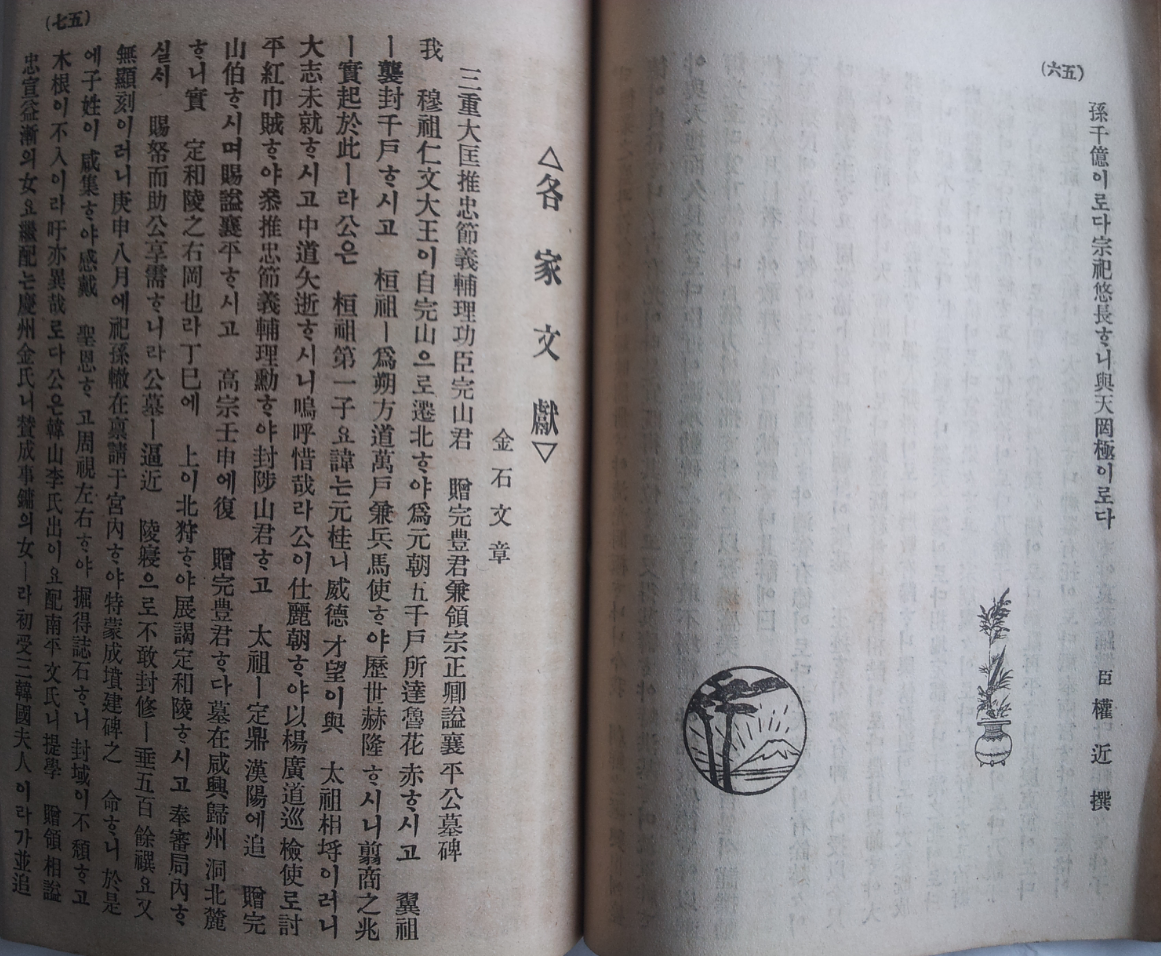 (六五)
孫千億이로다宗祀悠長ᄒᆞ니與天罔極이로다
臣權近撰
(七五)
△各家文獻▽
金石文章
三重大匡推忠節義輔理功臣完山君 贈完豊君兼領宗正卿謚襄平公墓碑
我 穆祖仁文大王이自完山으로遷北ᄒᆞ야爲元朝五千戶所達魯花赤ᄒᆞ시고 翼祖
ㅣ襲封千戶ᄒᆞ시고 桓祖ㅣ爲朔方道萬戶兼兵馬使ᄒᆞ야歷世赫隆ᄒᆞ시니翦商之兆
ㅣ實起於此ㅣ라公은 桓祖第一子요諱는元桂니威德才望이與 太祖相埒이러니
大志未就ᄒᆞ시고中道矢逝ᄒᆞ시니嗚呼惜哉라公이仕麗朝ᄒᆞ야以楊廣道巡檢使로討
平紅巾賊ᄒᆞ야叅推忠節義輔理勳ᄒᆞ야封陟山君ᄒᆞ고 太祖ㅣ定鼎漢陽에追 贈完
山伯ᄒᆞ시며賜謚襄平ᄒᆞ시고 高宗壬申에復 贈完豊君ᄒᆞ다墓在咸興歸州洞北麓
ᄒᆞ니實 定和陵之右岡也라丁巳에 上이北狩ᄒᆞ야展謁定和陵ᄒᆞ시고奉審局內ᄒᆞ
실시 賜帑而助公享需ᄒᆞ니라公墓ㅣ逼近 陵寢으로不敢封修ㅣ垂五百餘禩요又
無顯刻이러니庚申八月에祀孫轍在稟請于宮內ᄒᆞ야特蒙成墳建碑之 命ᄒᆞ니於是
에子姓이咸集ᄒᆞ야感戴 聖恩ᄒᆞ고周視左右ᄒᆞ야掘得誌石ᄒᆞ니封域이不頹ᄒᆞ고
木根이不入이라吁亦異哉로다公은韓山李氏出이요配南平文氏니提學 贈領相謚
忠宣益漸의女요繼配는慶州金氏니贊成事鏞의女ㅣ라初受三韓國夫人이라가並追